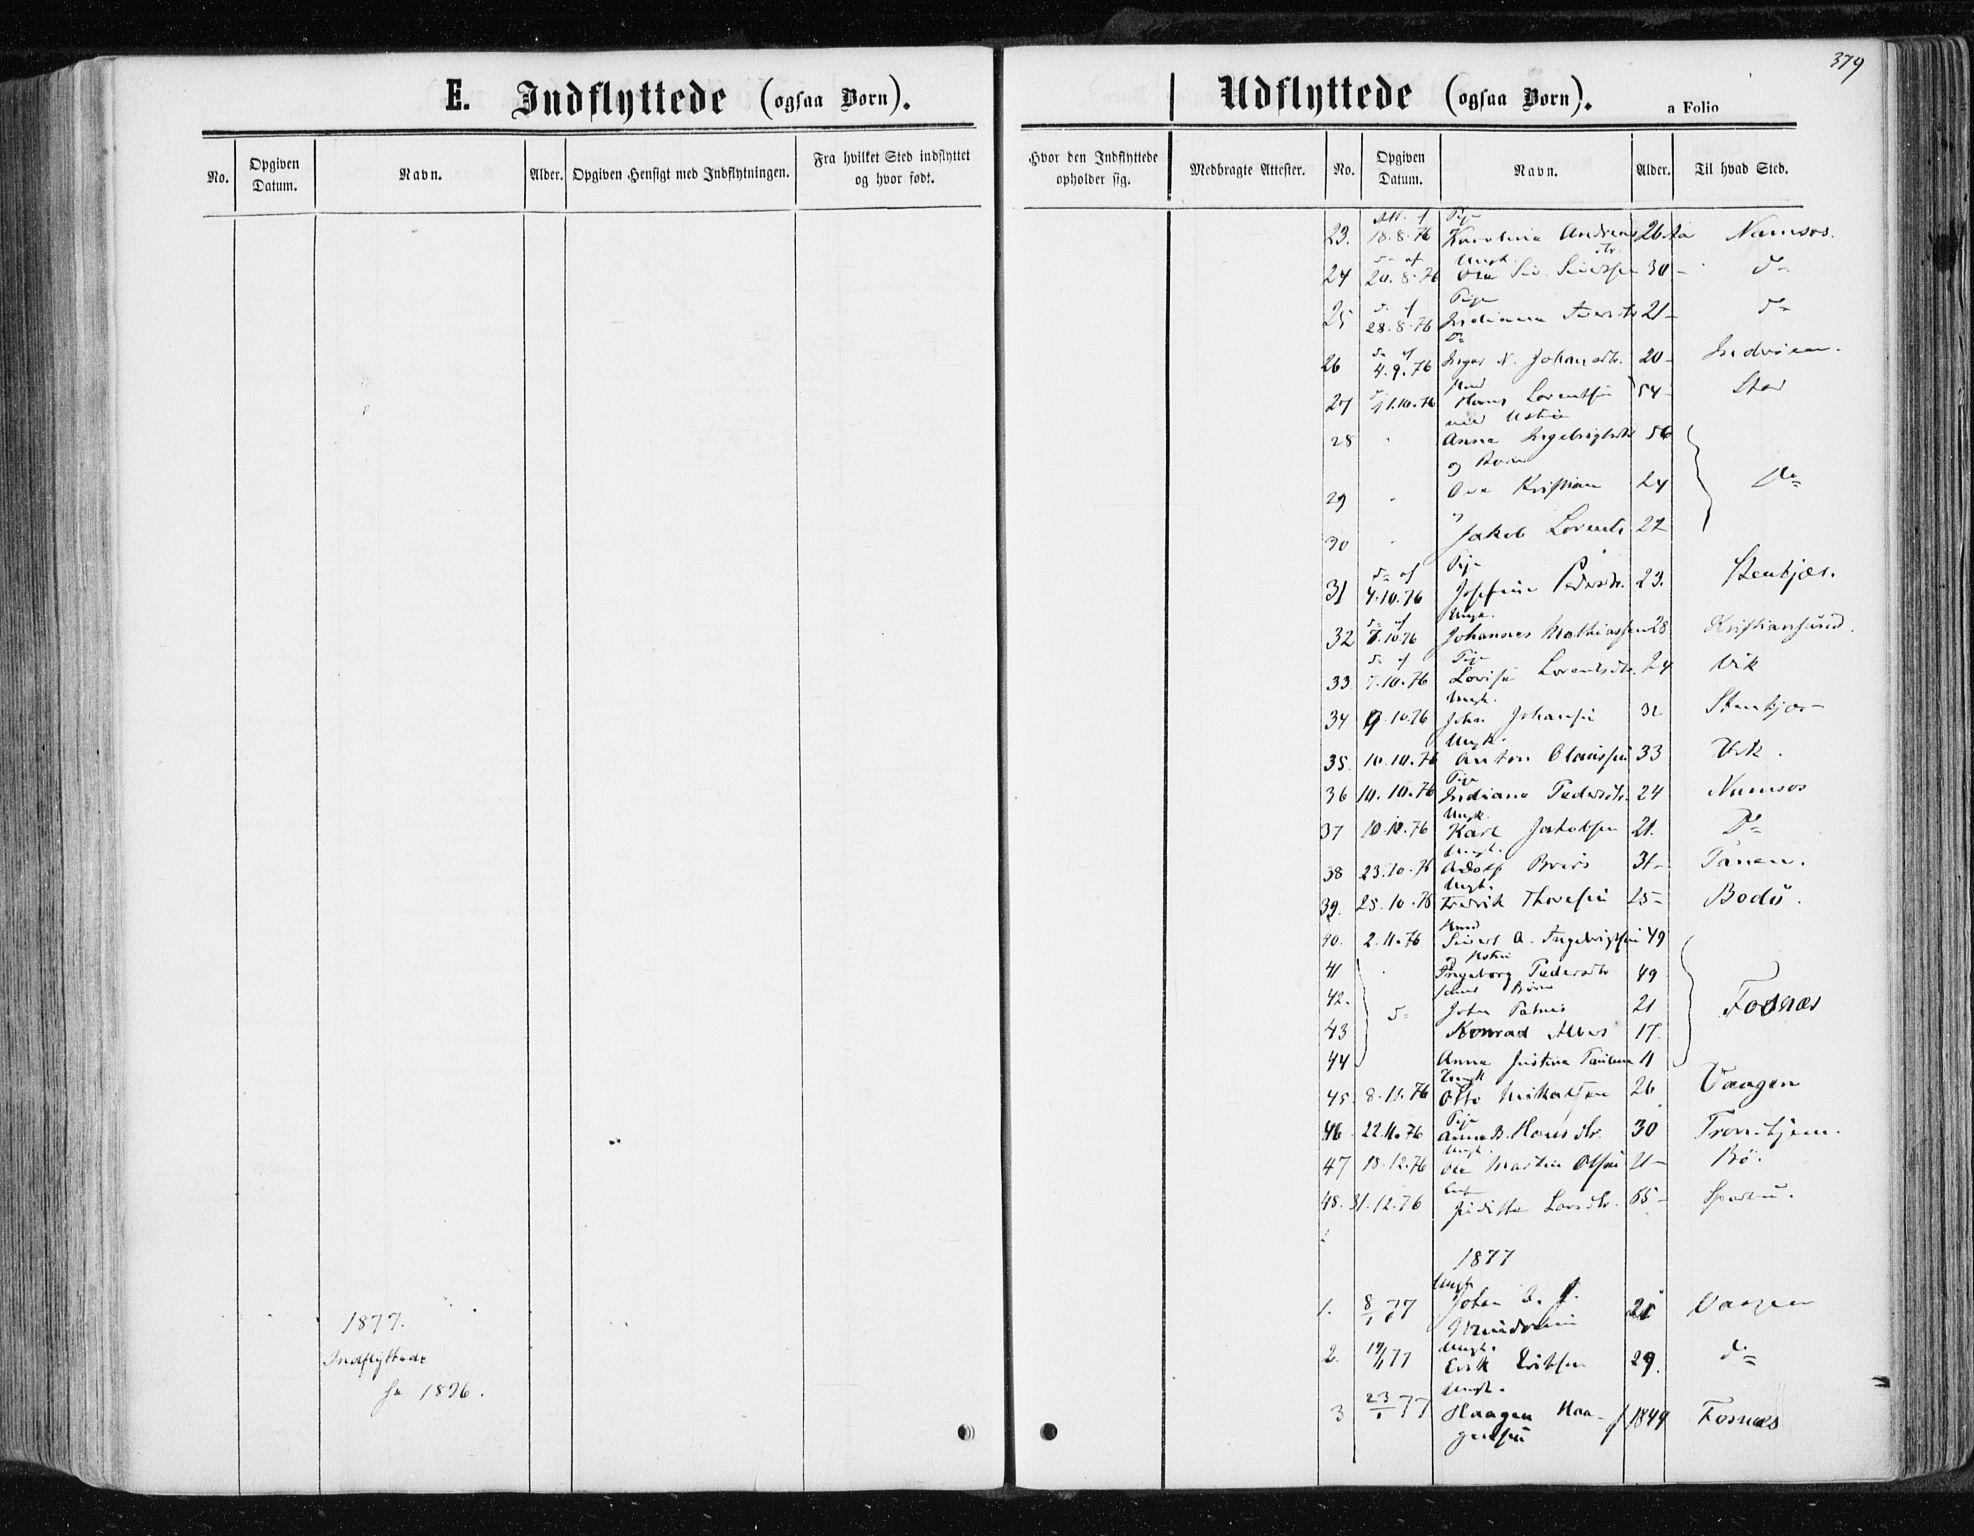 379
E. Indflyttede (ogsaa Børn).
Udflyttede (ogsaa Børn). a Folio
No. Opgiven Datum. Navn. Alder. Opgiven Hensigt med Indflytningen. Fra hvilket Sted indflyttet og hvor født.
Hvor den Indflyttede opholder sig. Medbragte Attester. No. Opgiven Datum. Navn. Alder. Til hvad Sted.
1877.
Indflyttede
1896.
Pige
23. 18.8.76 Karolina Andreas dtr. 26 Namsos.
Ungk.
24 20.8.76 30- d=
Pige
25 28.8.76 Indiana 21- d=
D=
26 4.9.76 Inger N. Johansdtr. 20- Indvigen.
27 11.10.76 Hans Lorentsen 54-
med Hustru
28 Anna Ingebrigtsdtr 56
og Børn
29 Kristian 24 D=
30 Jakob Lorents 22
D= af Pige
31 4.10.76 Josefine Pedersdtr. 23. Stenkjær.
Ungk.
32 7.10 76 Johannes Mathiassen 28 Kristiansund.
Pige
33 7.10.76 Lovise Lorentsdtr. 24 Vik
Ungk.
34 9.10.76 John Johansen 32 Stenkjær
Ungk.
35. 10.10.76 Anton Olaussen 33 Vik.
Pige
36 10.10.76 Indiana Pedersdtr. 24 Namsos
Ungk.
37 10.10.76 Karl Jakobsen 21. D=
Ungk.
38 23.10.76 Adolf 31- Tanen.
Ungk.
39. 25.10.76 Fredrik Thoresen 25- Bodö.
40. 2.11.76 Sivert A. Ingebrigtsen 49
Hustru
41 Ingeborg Pedersdtr 49
Børn
42. John 21 Fosnæs
43 Konrad 17.
44 Anna Justina 11
Ungk
45. 8.11.76 Otto Mikalsen 26 Vaagen
Pige
46. 22.11.76 Anna B. Hansdtr. 30 Trondhjem.
Ungk.
47 18.12.76 Ole Martin Olsen 21- Bö.
48. 31.12.76 Larsdtr. 65- Sparbu.
1877
Ungk
1. 8/1 77 Johan 21 Vaagen
Ungk.
2. 19/1 77 Erik Eriksen 29. d=
Ungk.
3 23/1 77 Haagen Haa- f 1849 Fosnæs
gensen